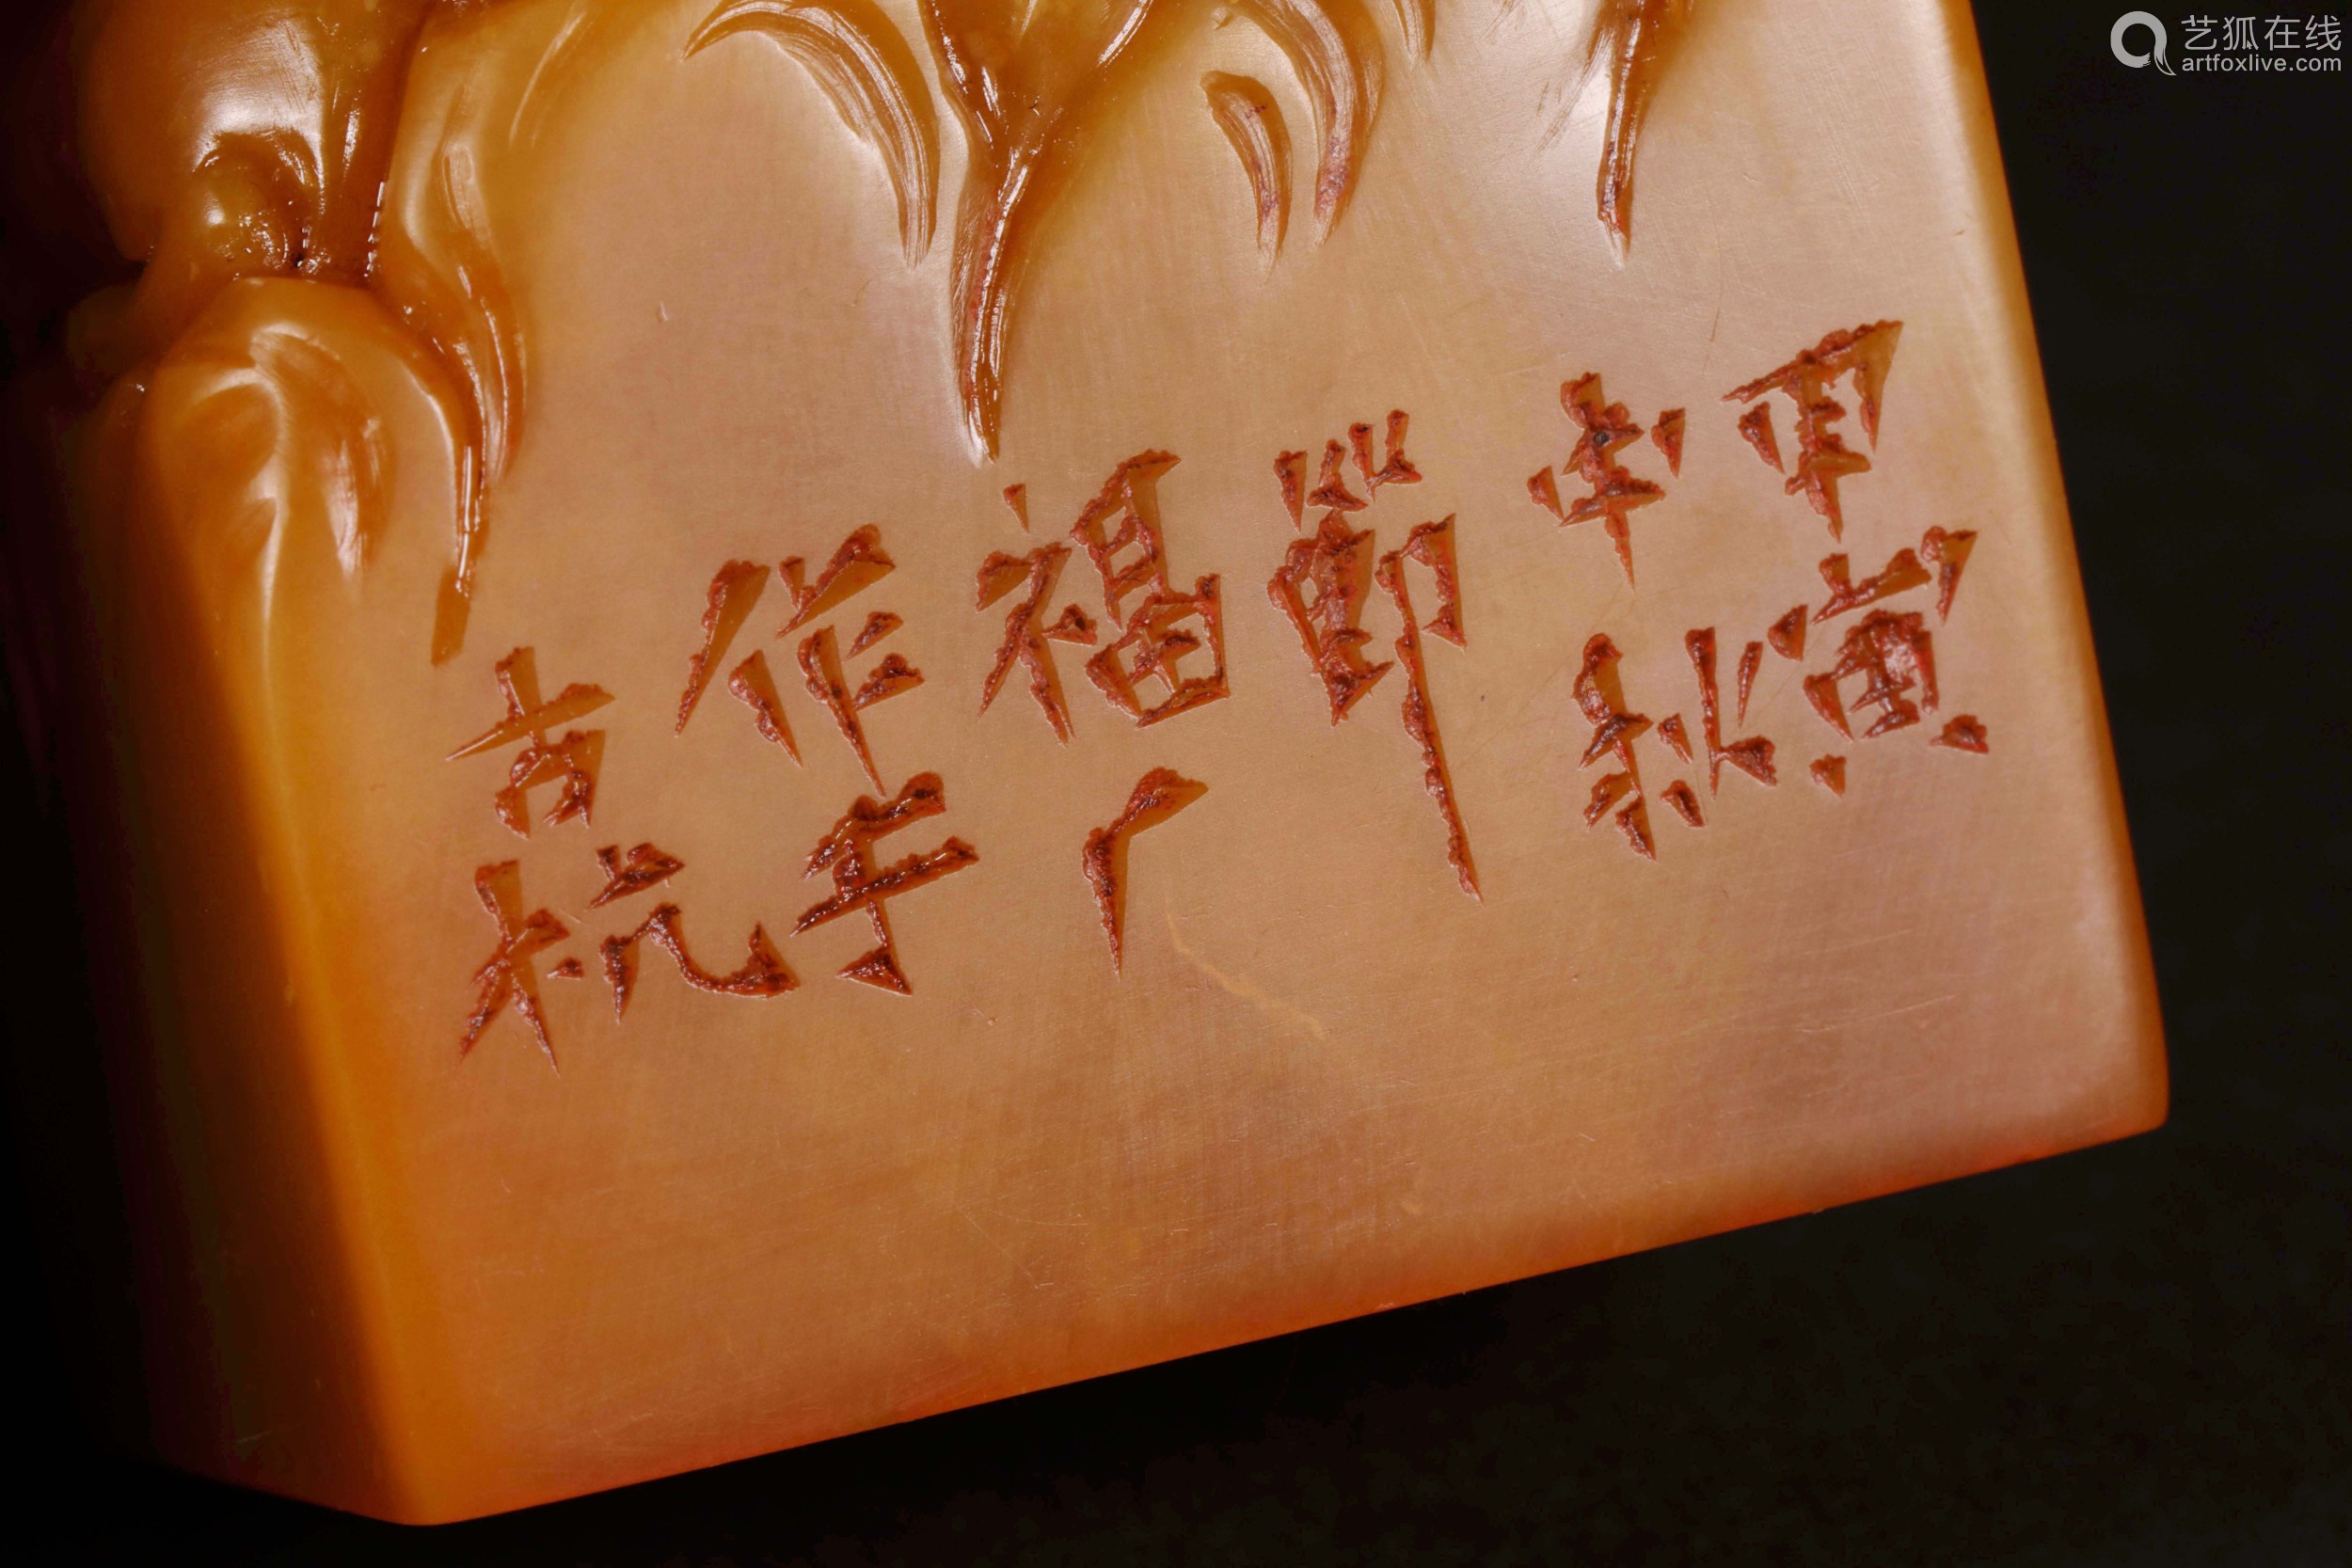 甲寅
中秋
節
福厂
作于
古杭
艺狐在线
artfoxlive.com